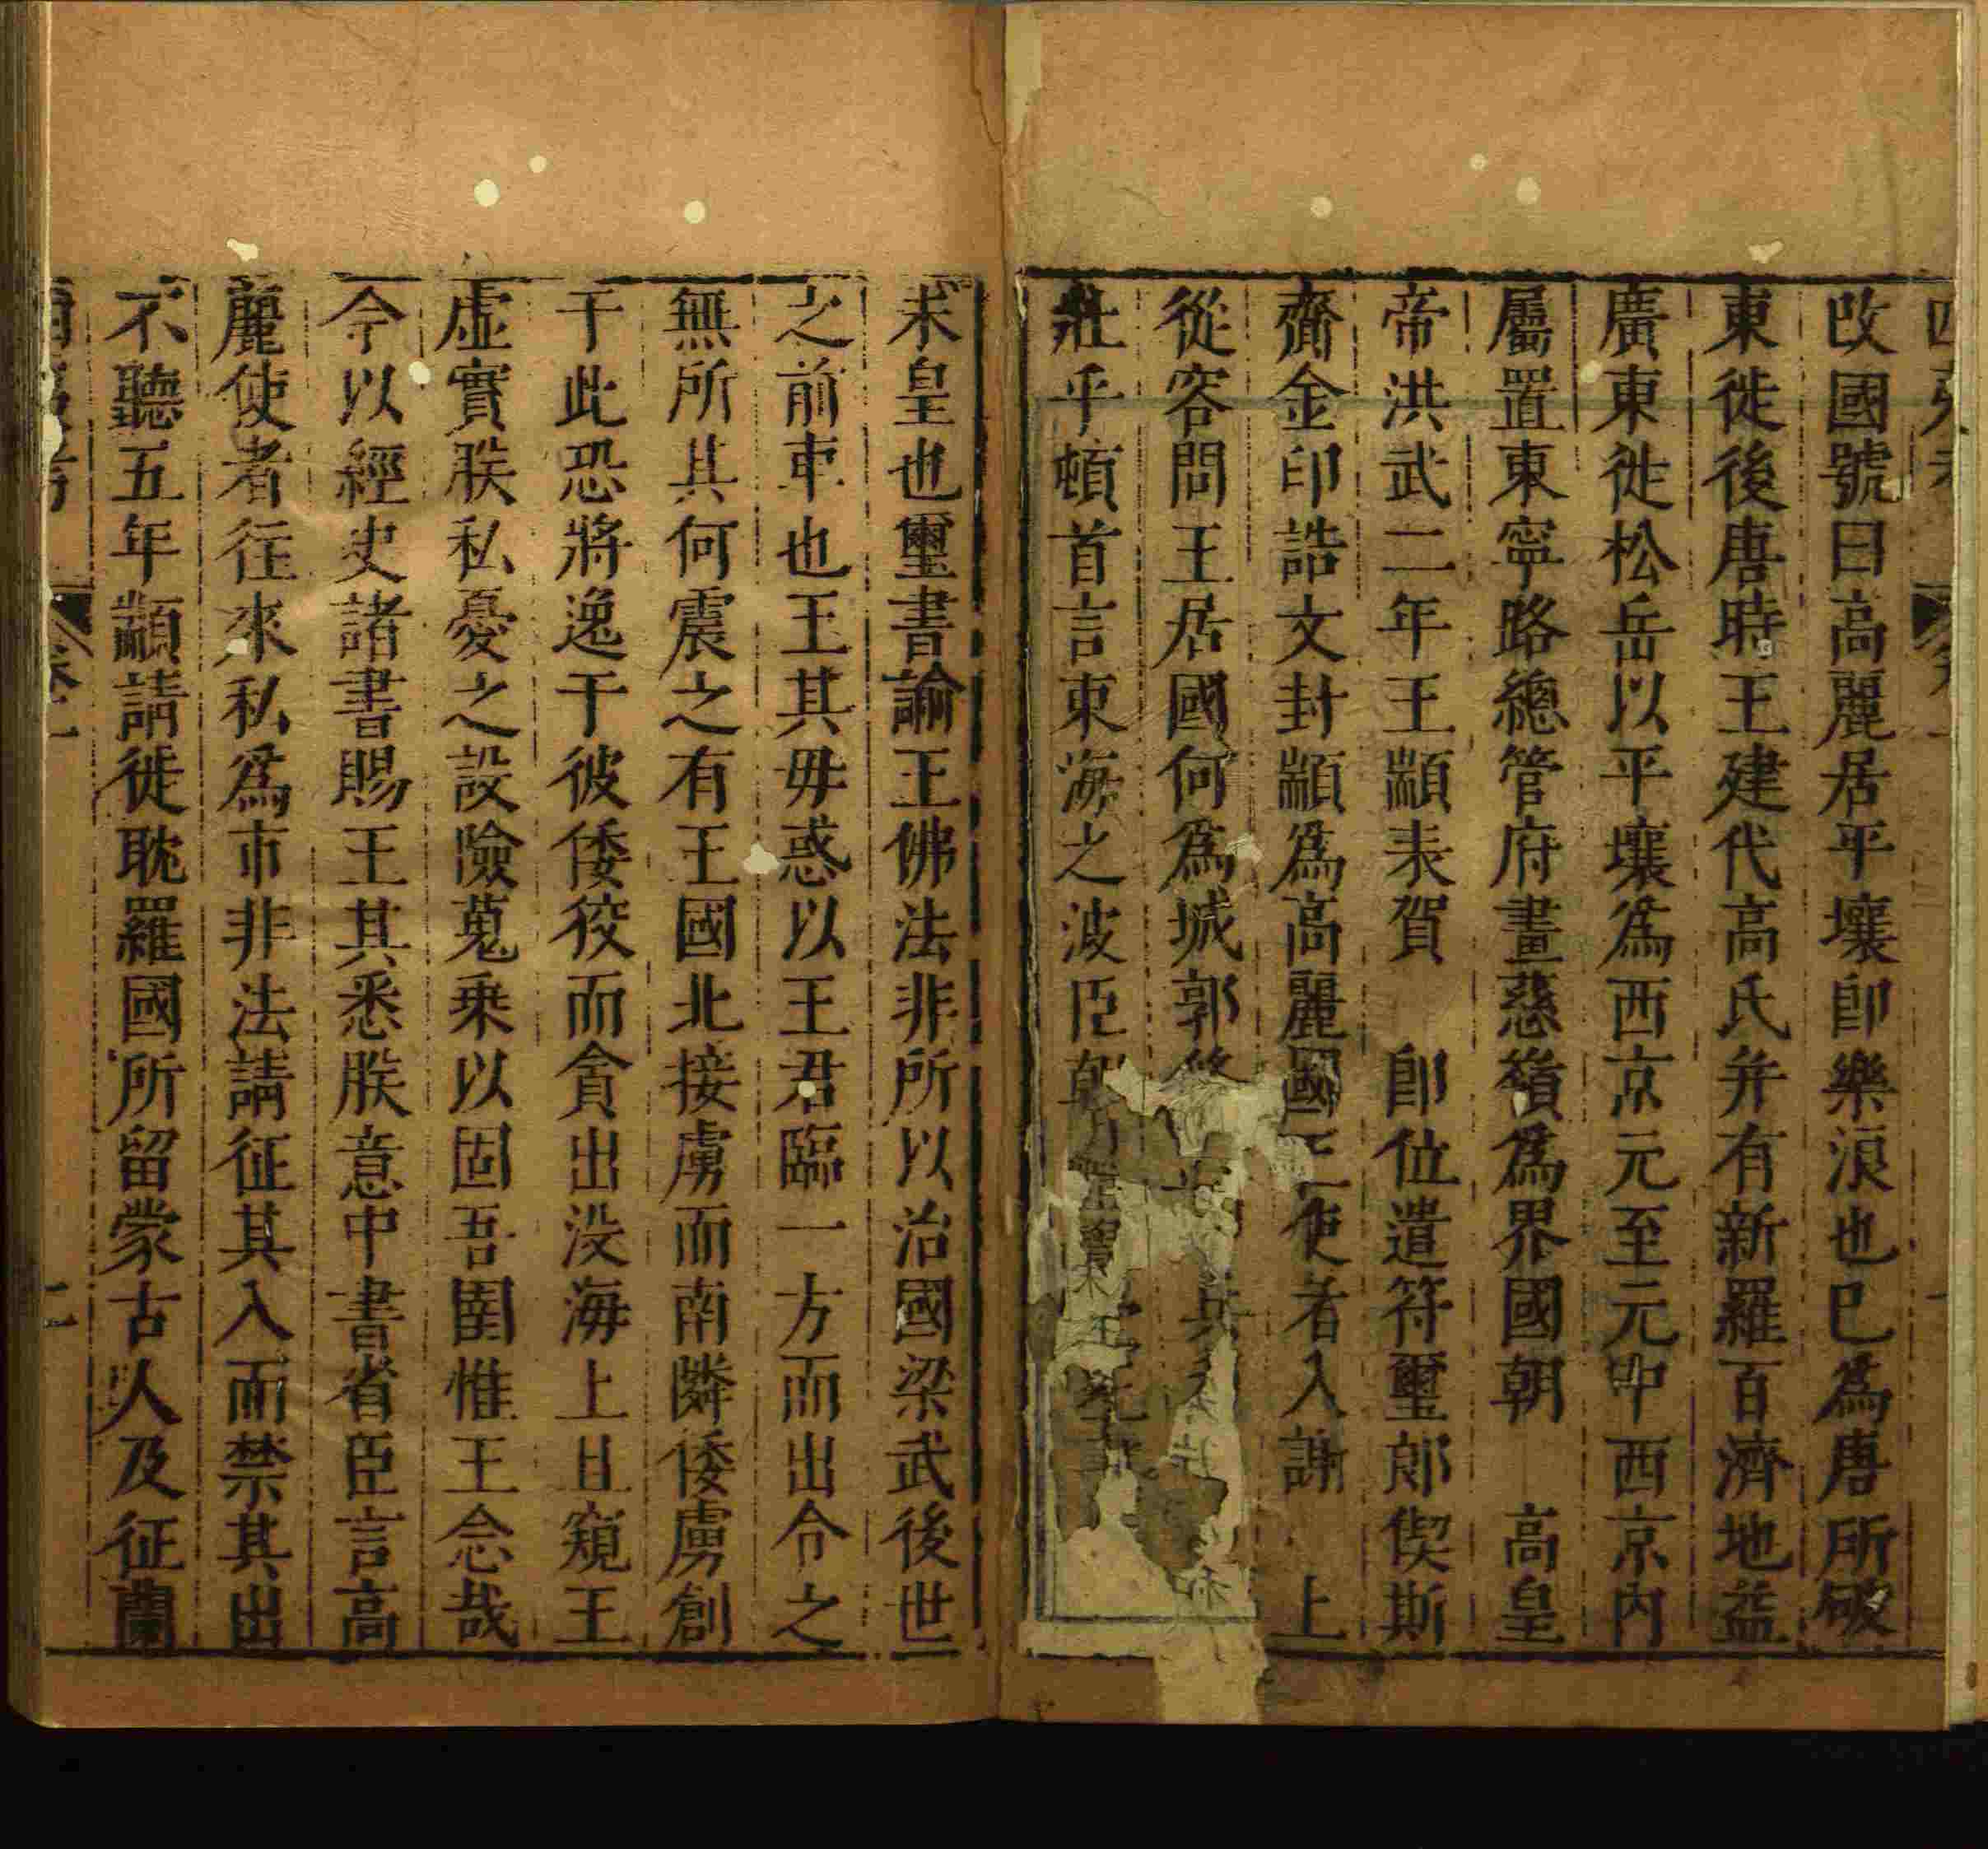 改國號曰高麗居平壤卽樂浪也巳爲唐所破
東徙後唐時王建代高氏并有新羅百濟地益
廣東徙松岳以平壤爲西京元至元中西京内
屬置東寧路總管府畫慈嶺爲界國朝　高皇
帝洪武二年王顓表賀　卽位遣符璽郎偰斯
齎金印誥文封顓爲高麗國王使者入謝　上
從容問王居國何爲城郭
莊乎頓首言東海之波臣朝
未皇也璽書諭王佛法非所以治國梁武後世
之前車也王其毋惑以王君臨一方而出令之
無所其何震之有王國北接虜而南隣倭虜創
于此恐將逸于彼倭役而貪出没海上日窺王
虚實朕私憂之設險蒐乗以固吾圉惟王念哉
今以經史諸書賜王其悉朕意中書省臣言高
麗使者往來私爲市非法請征其入而禁其出
不聽五年顓請徙耽羅國所留蒙古人及征蘭
卷一
二